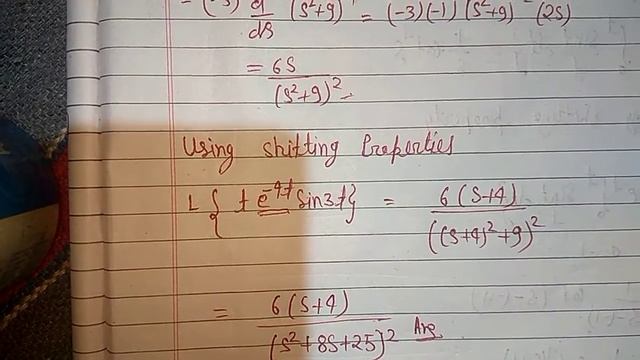 = (-3) d/ds (s²+9) = (-3)(-1) (s²+9)⁻ (2s)
= 6s/(s²+9)²
Using Shifting Properties
L { t e^-4t sin3t} = 6(s+4)/((s+4)²+9)²
= 6(s+4)/(s²+8s+25)² Ans